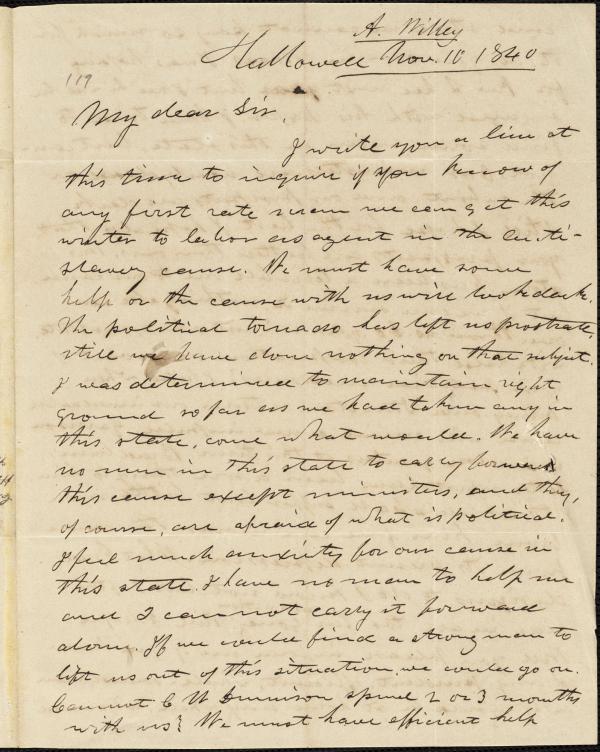 A. Willey
Hallowell Nov. 10 1840
119
My dear Sir,
I write you a line at
this time to inquire if you know of
any first rate man we can get this
winter to labor as agent in the anti-
slavery cause. We must have some
help or the cause with us will look dark.
The political tornado has left us prostrate,
still we have done nothing on that subject.
I was determined to maintain right
ground so far as we had taken any in
this state, come what would. We have
no men in this state to carry forward
this cause except ministers, and they,
of course, are afraid of what is political.
I feel much anxiety for our cause in
this state. I have no man to help me
and I cannot carry it forward
alone. If we could find a strong man to
lift us out of this situation, we could go on.
Cannot C spend 2 or 3 months
with us? We must have efficient help